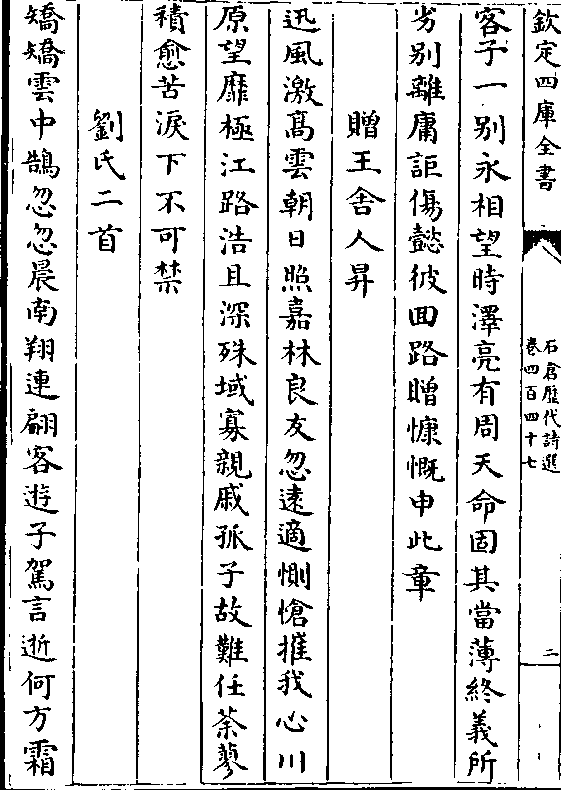 欽定四庫全書
石倉歷代詩選
卷四百四十七
二
客子一别永相望時澤亮有周天命固其當薄終義所
劣别離庸詎傷懿彼回路贈慷慨申此章
贈王舍人昇
迅風激髙雲朝日照嘉林良友忽遠適惻愴摧我心川
原望靡極江路浩且深殊域寡親戚孤子故難任荼蓼
積愈苦淚下不可禁
劉氏二首
矯矯雲中鵠忽忽晨南翔連翩客遊子駕言逝何方霜